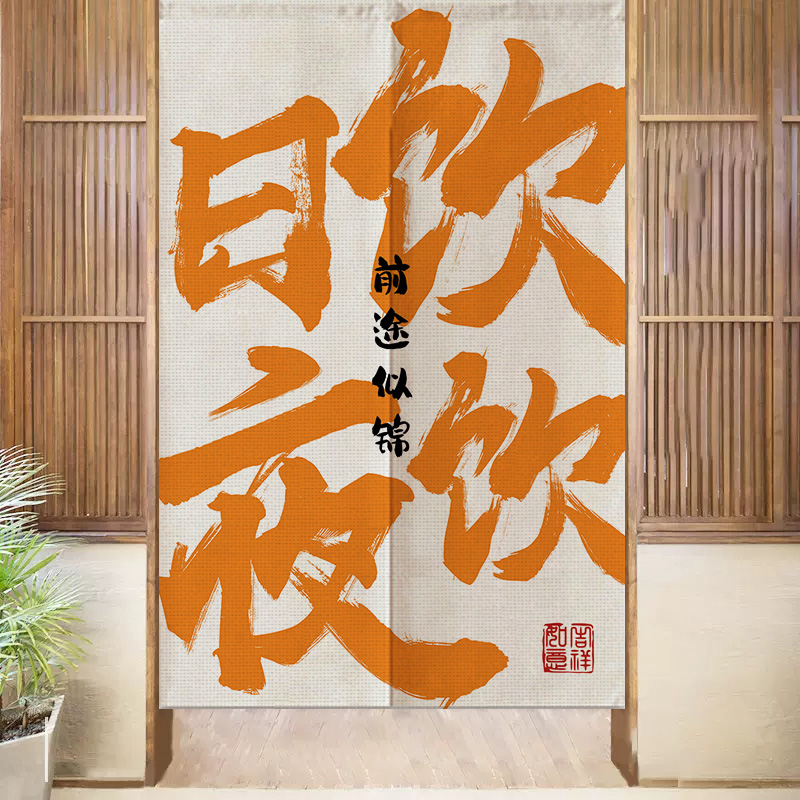 饮饮
日夜
前途似锦
吉祥
如意